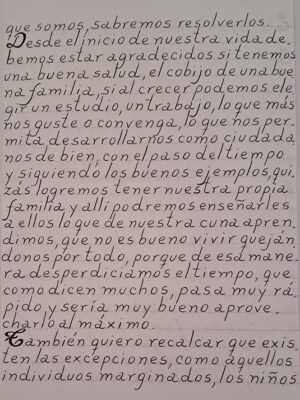 que somos, sabremos resolverlos.
Desde el inicio de nuestra vida de.
bemos estar agradecidos si tenemos
una buena salud, el cobijo de una bue
na familia, si al crecer podemos ele
gir un estudio, un trabajo, lo que más
nos guste o convenga, lo que nos per.
mita desarrollarnos como ciudada
nos de bien, con el paso del tiempo
y siguiendo los buenos ejemplos, qui.
zás logremos tener nuestra propia
familia y allí podremos enseñarles
a ellos lo que de nuestra cuna apren.
dimos, que no es bueno vivir queján
donos por todo, porque de esa mane.
ra desperdiciamos el tiempo, que
como dicen muchos, pasa muy rá.
pido y sería muy bueno aprove.
charlo al máximo.
También quiero recalcar que exis.
ten las excepciones, como aquellos
individuos marginados, los niños